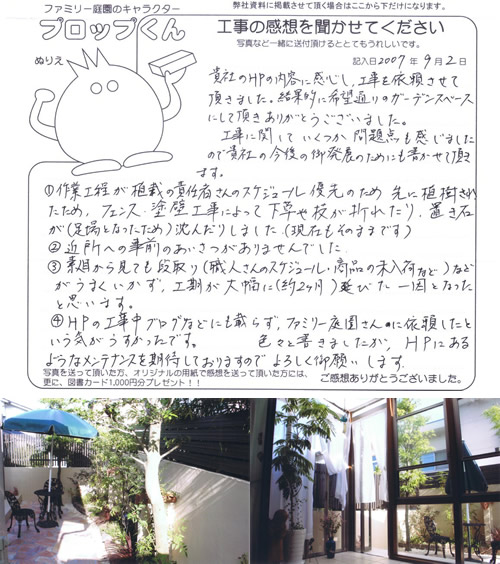 ファミリー庭園のキャラクター
プロップくん
ぬりえ
弊社資料に掲載させて頂く場合はここから下だけになります。
工事の感想を聞かせてください
写真など一緒に送付頂けるととてもうれしいです。
記入日2007年9月2日
貴社のHPの内容に感心し、工事を依頼させて
頂きました。結果的に希望通りのガーデンスペース
にして頂きありがとうございました。
工事に関していくつか問題点も感じました
ので貴社の今後の御発展のためにも書かせて頂き
ます。
①作業工程が植栽の責任者さんのスケジュール優先のため先に植樹され
たため、フェンス・塗壁工事によって下草や枝が折れたり、置き石
が(足場となったため)沈んだりしました。(現在もそのままです)
②近所への事前のあいさつがありませんでした。
③素人目から見ても段取り(職人さんのスケジュール・商品の未入荷など)など
がうまくいかず、工期が大幅に(約2ヶ月)延びた一因となった
と思います。
④HPの工事中ブログなどにも載らず、ファミリー庭園さんに依頼したと
いう気がうすかったです。 色々と書きましたが、HPにある
ようなメンテナンスを期待しておりますのでよろしく御願いします。
写真を送って頂いた方、オリジナルの用紙で感想を送って頂いた方には、
更に、図書カード1,000円分プレゼント！！
ご感想ありがとうございました。